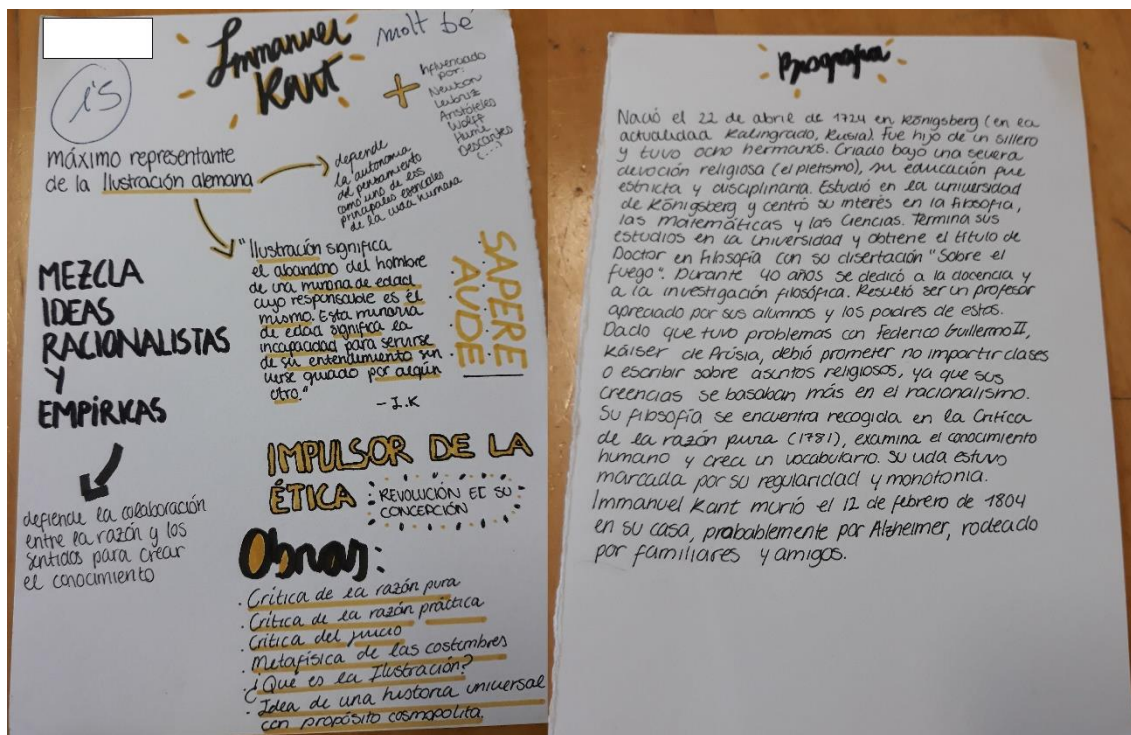 Immanuel
Kant
molt bé
+
Influenciado
por:
Newton
Leibniz
Aristóteles
Wolff
Hume
Descartes
(...)
máximo representante
de la Ilustración alemana
defiende
la autonomía
del pensamiento
como uno de los
principales esenciales
de la vida humana
"Ilustración significa
el abandono del hombre
de una minoría de edad
cuyo responsable es él
mismo. Esta minoría
de edad significa la
incapacidad para servirse
de su entendimiento sin
verse guiado por algún
otro."
- I.K
SAPERE
AUDE
MEZCLA
IDEAS
RACIONALISTAS
Y
EMPÍRICAS
defiende la colaboración
entre la razón y los
sentidos para crear
el conocimiento
IMPULSOR DE LA
ÉTICA
REVOLUCIÓN EC SU
CONCEPCIÓN
Obras:
· Crítica de la razón pura
· Crítica de la razón práctica
· Crítica del juicio
· Metafísica de las costumbres
· ¿Qué es la Ilustración?
· Idea de una historia universal
con propósito cosmopolita.
Biografía
Nació el 22 de abril de 1724 en Königsberg (en la
actualidad Kalingrado, Rusia). Fue hijo de un sillero
y tuvo ocho hermanos. Criado bajo una severa
devoción religiosa (el pietismo), su educación fue
estricta y disciplinaria. Estudió en la universidad
de Königsberg y centró su interés en la filosofía,
las matemáticas y las ciencias. Termina sus
estudios en la Universidad y obtiene el título de
Doctor en Filosofía con su disertación "Sobre el
fuego". Durante 40 años se dedicó a la docencia y
a la investigación filosófica. Resultó ser un profesor
apreciado por sus alumnos y los padres de estos.
Dado que tuvo problemas con Federico Guillermo II,
Káiser de Prúsia, debió prometer no impartir clases
o escribir sobre asuntos religiosos, ya que sus
creencias se basaban más en el racionalismo.
Su filosofía se encuentra recogida en la Crítica
de la razón pura (1781), examina el conocimiento
humano y crea un vocabulario. Su vida estuvo
marcada por su regularidad y monotonía.
Immanuel Kant murió el 12 de febrero de 1804
en su casa, probablemente por Alzheimer, rodeado
por familiares y amigos.